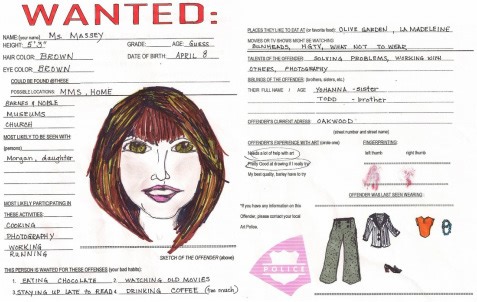 WANTED:
NAME: (your name) Ms. MASSEY
HEIGHT: 5'3" GRADE: AGE: GUESS
HAIR COLOR: BROWN DATE OF BIRTH: APRIL 8
EYE COLOR: BROWN
COULD BE FOUND @THESE
POSSIBLE LOCATIONS: MMS, HOME
BARNES & NOBLE
MUSEUMS
CHURCH
MOST LIKELY TO BE SEEN WITH
(persons)
Morgan, daughter
MOST LIKELY PARTICIPATING IN
THESE ACTIVITIES:
COOKING
PHOTOGRAPHY
WORKING
RUNNING
SKETCH OF THE OFFENDER (above)
THIS PERSON IS WANTED FOR THESE OFFENSES (your bad habits):
1. EATING CHOCOLATE 2. WATCHING OLD MOVIES
3. STAYING UP LATE TO READ 4. DRINKING COFFEE (too much)
PLACES THEY LIKE TO EAT AT (or favorite food): OLIVE GARDEN, LA MADELEINE
MOVIES OR TV SHOWS MIGHT BE WATCHING
BUNHEADS, HGTV, WHAT NOT TO WEAR
TALENTS OF THE OFFENDER: SOLVING PROBLEMS, WORKING WITH
OTHERS, PHOTOGRAPHY
SIBLINGS OF THE OFFENDER: (brothers, sisters, etc.)
THEIR FULL NAME / AGE YOHANNA - sister
TODD - brother
OFFENDER'S CURRENT ADRESS: OAKWOOD
(street number and street name)
OFFENDER'S EXPERIENCE WITH ART (circle one)
Needs a lot of help with art
Pretty Good at drawing if I really try
My best quality, barley have to try
FINGERPRINTING:
left thumb right thumb
OFFENDER WAS LAST SEEN WEARING:
*If you have any information on this
Offender, please contact your local
Art Police.
POLICE